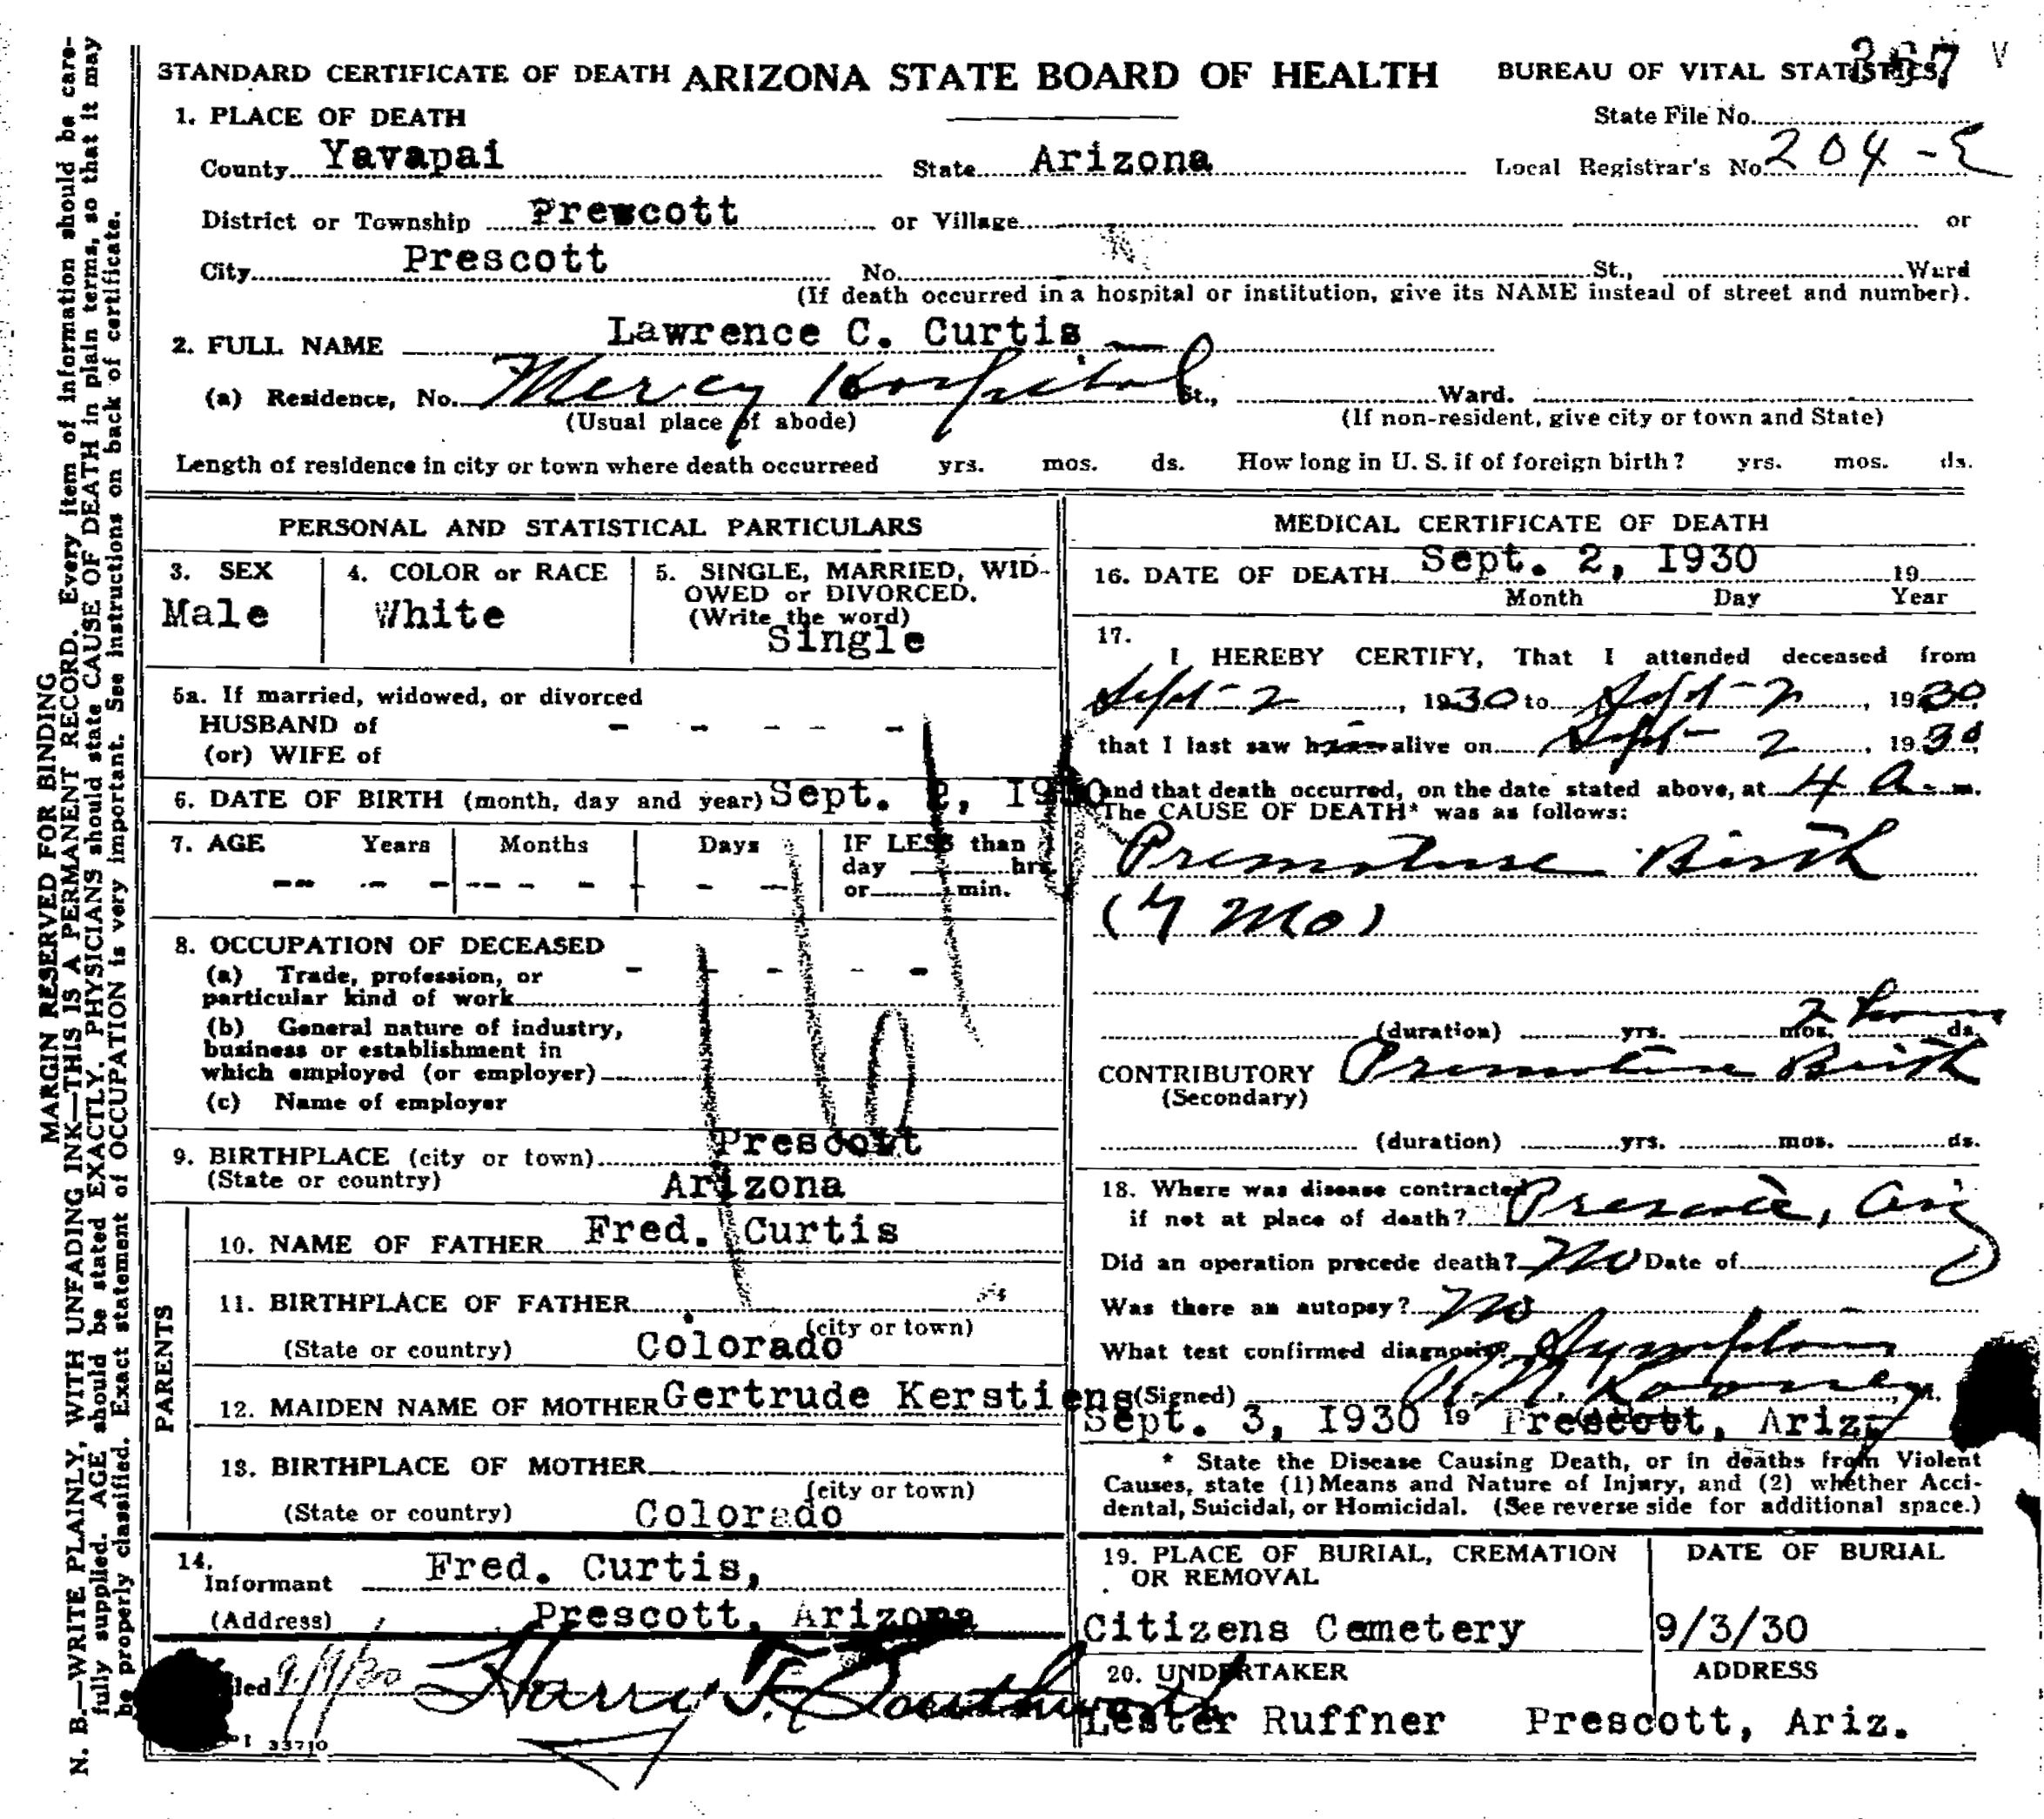 STANDARD CERTIFICATE OF DEATH ARIZONA STATE BOARD OF HEALTH BUREAU OF VITAL STATISTICS
367 V
1. PLACE OF DEATH State File No.
County Yavapai State Arizona Local Registrar's No. 204-E
District or Township Prewcott or Village or
City Prescott No. St., Ward
(If death occurred in a hospital or institution, give its NAME instead of street and number).
2. FULL NAME Lawrence C. Curtis
(a) Residence, No. Mercy Hospital St., Ward.
(Usual place of abode) (If non-resident, give city or town and State)
Length of residence in city or town where death occurreed yrs. mos. ds. How long in U. S. if of foreign birth? yrs. mos. ds.
PERSONAL AND STATISTICAL PARTICULARS
3. SEX
Male
4. COLOR or RACE
White
5. SINGLE, MARRIED, WID-
OWED or DIVORCED.
(Write the word)
Single
5a. If married, widowed, or divorced
HUSBAND of - - - - -
(or) WIFE of
6. DATE OF BIRTH (month, day and year) Sept. 2, 1930
7. AGE Years Months Days IF LESS than
day hrs
or min.
8. OCCUPATION OF DECEASED
(a) Trade, profession, or - - - - -
particular kind of work
(b) General nature of industry,
business or establishment in
which employed (or employer)
(c) Name of employer
9. BIRTHPLACE (city or town) Prescott
(State or country) Arizona
PARENTS
10. NAME OF FATHER Fred. Curtis
11. BIRTHPLACE OF FATHER
(city or town)
(State or country) Colorado
12. MAIDEN NAME OF MOTHER Gertrude Kerstiens
13. BIRTHPLACE OF MOTHER
(city or town)
(State or country) Colorado
14.
Informant Fred. Curtis,
(Address) Prescott, Arizona
9/9/30 Harry T. Southworth
1 33710
MEDICAL CERTIFICATE OF DEATH
16. DATE OF DEATH Sept. 2, 1930 19
Month Day Year
17.
I HEREBY CERTIFY, That I attended deceased from
Sept-2, 1930 to Sept-2, 1930
that I last saw him alive on Sept- 2, 1930
and that death occurred, on the date stated above, at 4 A. m.
The CAUSE OF DEATH* was as follows:
Premature Birth
(7 Mo)
2 hours
(duration) yrs. mos. ds.
CONTRIBUTORY Premature Birth
(Secondary)
(duration) yrs. mos. ds.
18. Where was disease contracted
if not at place of death? Prescott, Ariz
Did an operation precede death? No Date of
Was there an autopsy? No
What test confirmed diagnosis? Symptoms
(Signed) Looney
Sept. 3, 1930 19 Prescott, Ariz.
* State the Disease Causing Death, or in deaths from Violent
Causes, state (1) Means and Nature of Injury, and (2) whether Acci-
dental, Suicidal, or Homicidal. (See reverse side for additional space.)
19. PLACE OF BURIAL, CREMATION
OR REMOVAL
Citizens Cemetery
DATE OF BURIAL
9/3/30
20. UNDERTAKER ADDRESS
Lester Ruffner Prescott, Ariz.
MARGIN RESERVED FOR BINDING
N. B.—WRITE PLAINLY, WITH UNFADING INK—THIS IS A PERMANENT RECORD. Every item of information should be care-
fully supplied. AGE should be stated EXACTLY. PHYSICIANS should state CAUSE OF DEATH in plain terms, so that it may
be properly classified. Exact statement of OCCUPATION is very important. See instructions on back of certificate.